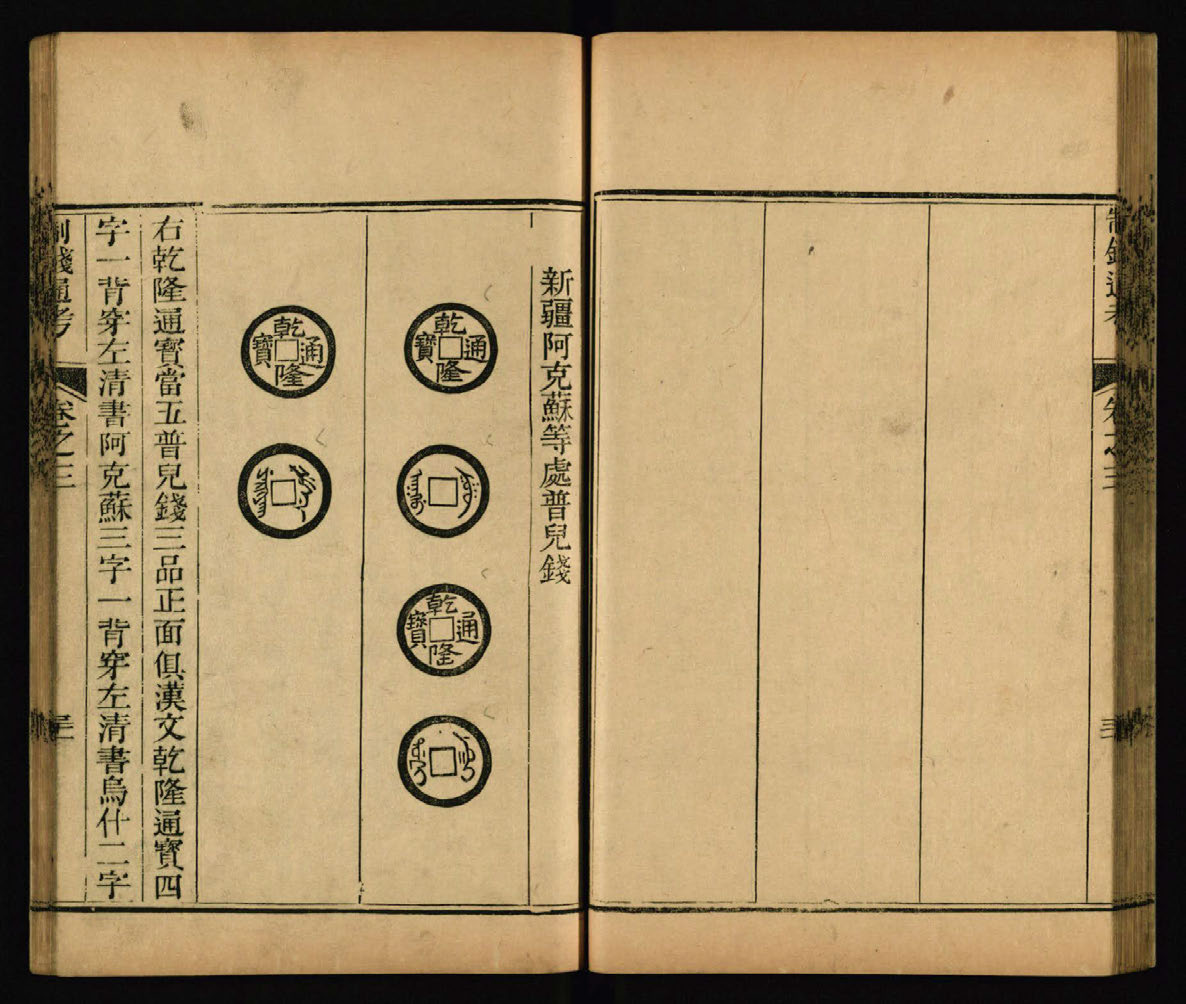 制錢通考
卷之三
新疆阿克蘇等處普兒錢
乾隆通寶
乾隆通寶
乾隆通寶
右乾隆通寶當五普兒錢三品正面俱漢文乾隆通寶四
字一背穿左清書阿克蘇三字一背穿左清書烏什二字
制錢通考
卷之三